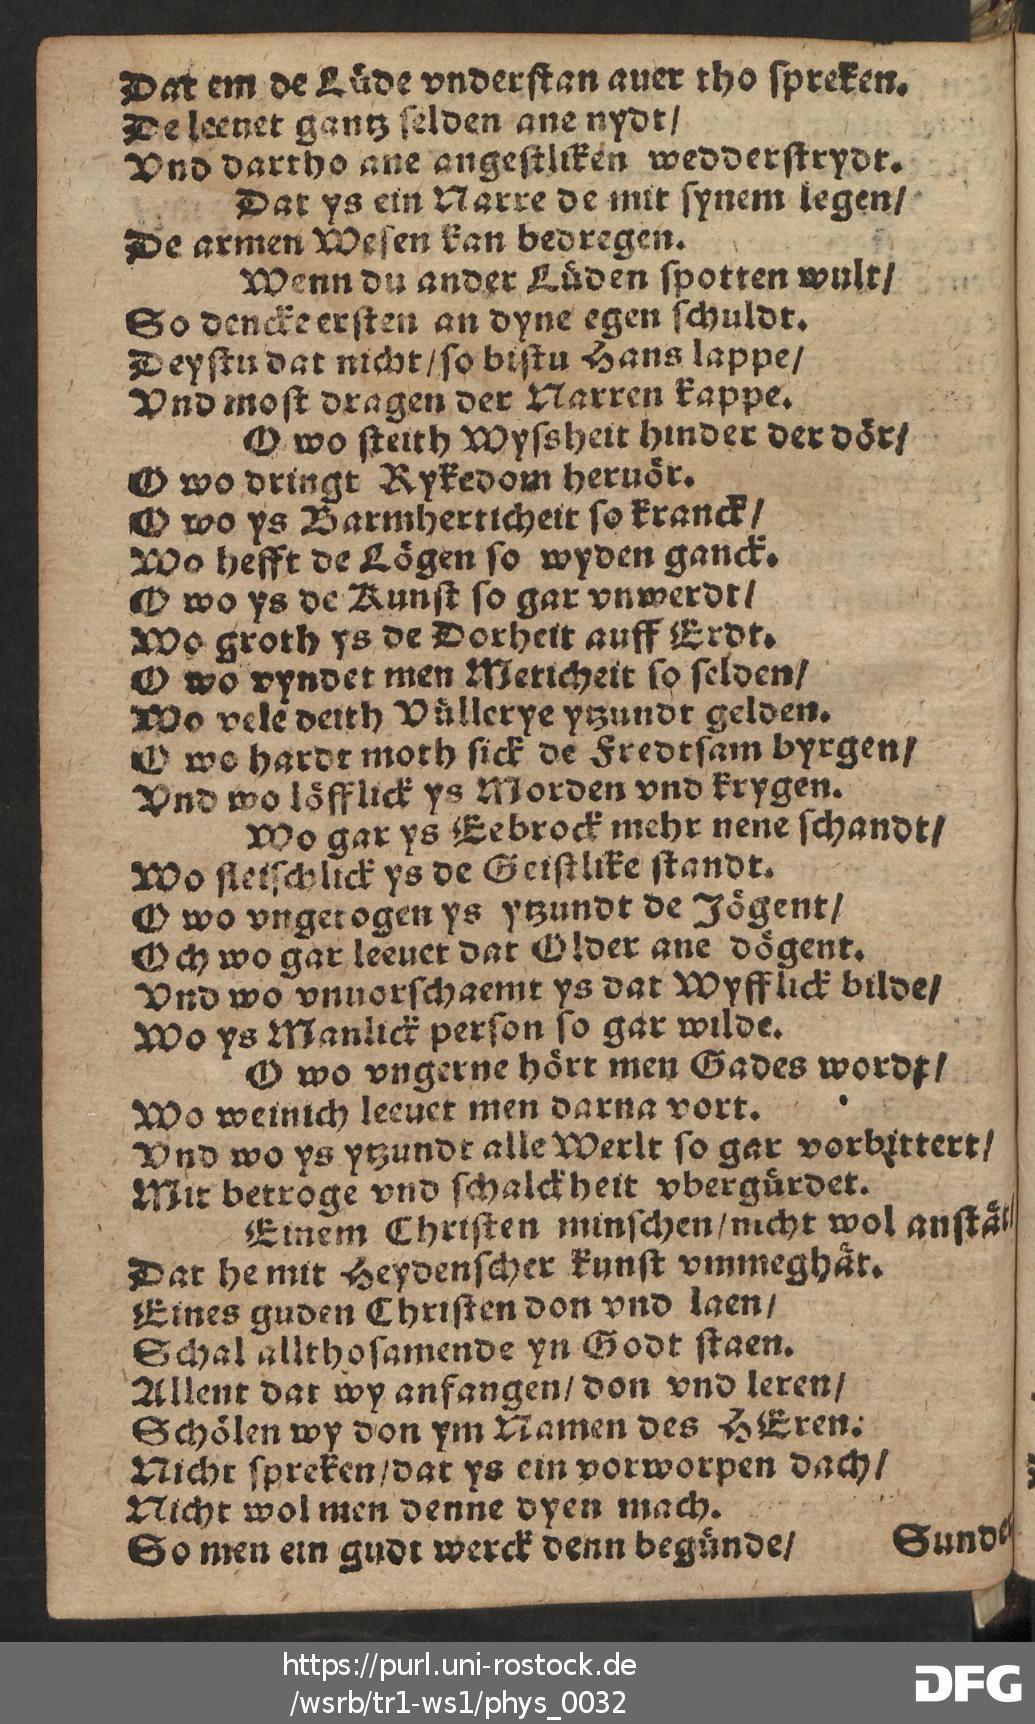 Dat em de Lüde vnderstan auer tho spreken.
De leeuet gantz selden ane nydt/
Vnd dartho ane angestliken wedderstrydt.
Dat ys ein Narre de mit synem legen/
De armen Wesen kan bedregen.
Wenn du ander Lüden spotten wult/
So dencke ersten an dyne egen schuldt.
Deystu dat nicht/so bistu Hans lappe/
Vnd most dragen der Narren kappe.
O wo steith Wyssheit hinder der dör/
O wo dringt Rykedom heruör.
O wo ys Barmherticheit so kranck/
Wo hefft de Lögen so wyden ganck.
O wo ys de Kunst so gar vnwerdt/
Wo groth ys de Dorheit auff Erdt.
O wo vyndet men Meticheit so selden/
Wo vele deith Vüllerye ytzundt gelden.
O wo hardt moth sick de Fredtsam byrgen/
Vnd wo löfflick ys Morden vnd krygen.
Wo gar ys Eebrock mehr nene schandt/
Wo fleischlick ys de Geistlike standt.
O wo vngetogen ys ytzundt de Jögent/
Och wo gar leeuet dat Older ane dögent.
Vnd wo vnuorschaemt ys dat Wyfflick bilde/
Wo ys Manlick person so gar wilde.
O wo vngerne hört men Gades wordt/
Wo weinich leeuet men darna vort.
Vnd wo ys ytzundt alle Werlt so gar vorbittert/
Mit betroge vnd schalckheit vbergürdet.
Einem Christen minschen/nicht wol anstät/
Dat he mit Heydenscher kunst vmmeghät.
Eines guden Christen don vnd laen/
Schal allthosamende yn Godt staen.
Allent dat wy anfangen/don vnd leren/
Schölen wy don ym Namen des HEren.
Nicht spreken/dat ys ein vorworpen dach/
Nicht wol men denne dyen mach.
So men ein gudt werck denn begünde/
Sunder
https://purl.uni-rostock.de
/wsrb/tr1-ws1/phys_0032
DFG